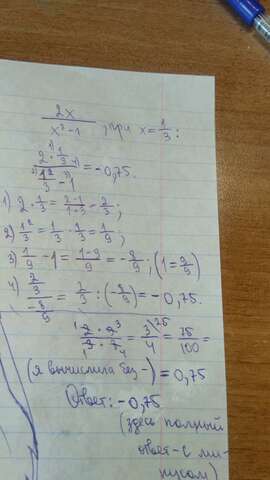 2x / x² - 1 , при x = 1/3 :
2 · 1/3 / 1²/3 - 1 = -0,75.
1) 2 · 1/3 = 2·1 / 1·3 = 2/3 ;
2) 1²/3 = 1/3 · 1/3 = 1/9 ;
3) 1/9 - 1 = 1-9 / 9 = -8/9 ; (1 = 9/9)
4) 2/3 / -8/9 = 2/3 : (-8/9) = -0,75.
3/4 = 75/100 =
(я вычислила без -) = 0,75
Ответ: -0,75
(здесь полный
ответ - с ми-
нусом)